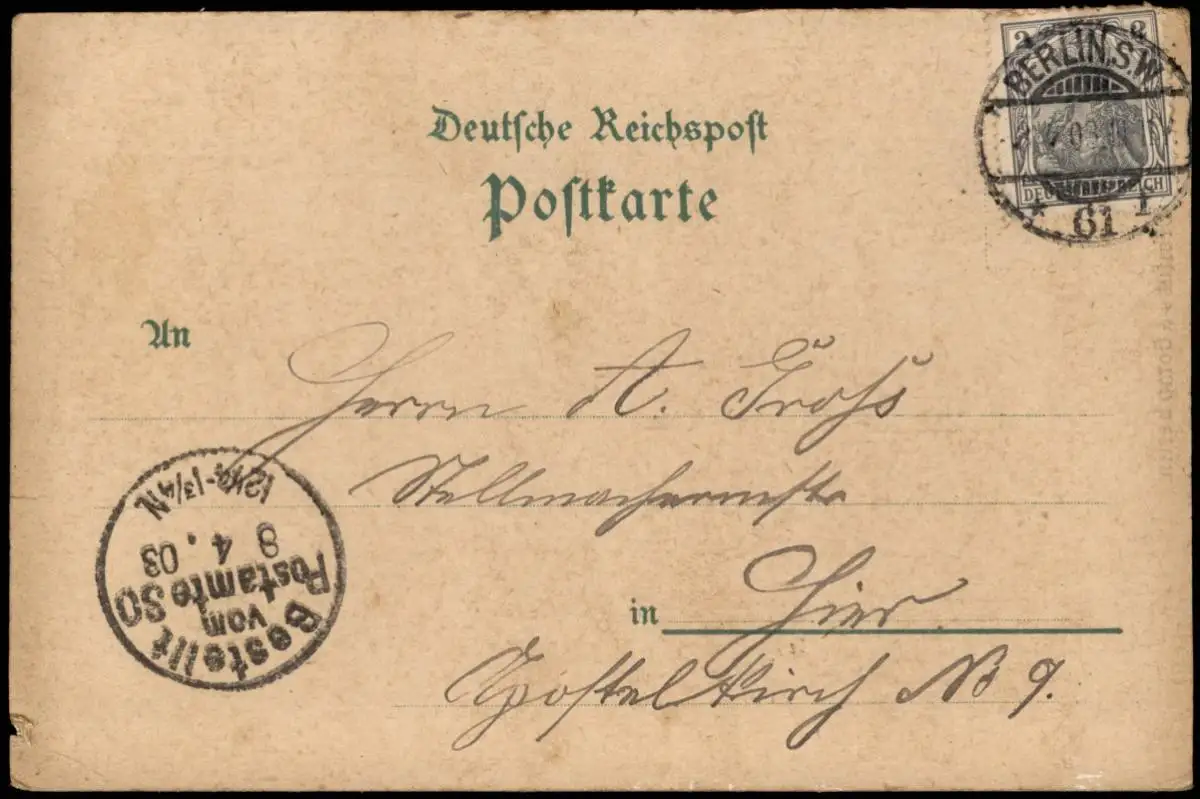 2 2
BERLIN.S.W.
DEUTSCHES REICH
61
Deutsche Reichspost
Postkarte
An
Herrn A. Groß
Stellmachermstr
in Hier.
Apostelkirch No 9.
Bestellt
vom
Postamte SO
8 4 . 03
12½-1¾N.